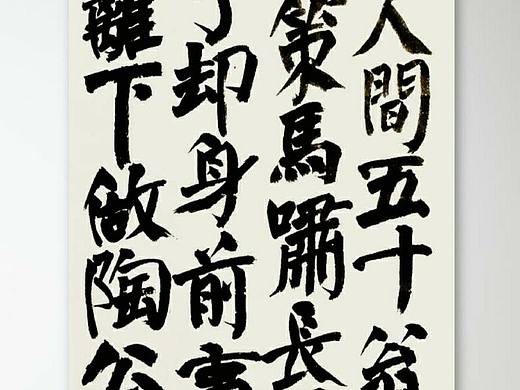 人間五十翁
策馬嘯長
了却身前事
籬下做陶公